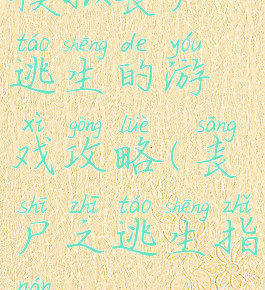 táo shēng de yóu
逃生的游
xì gōng lüè sāng
戏攻略(丧
shī zhī táo shēng zhǐ
尸之逃生指
nán